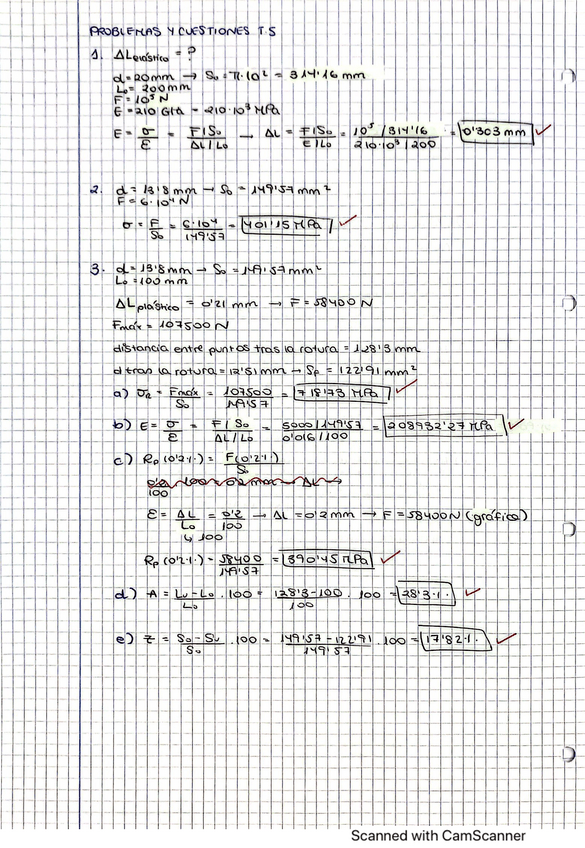 PROBLEMAS Y CUESTIONES T.5
1. ΔLelástico = ?
d = 20mm → S₀ = π·10² = 314'16 mm
L₀ = 200mm
F = 10⁵ N
E = 210 GPa = 210·10³ MPa
E = σ/ε = (F/S₀)/(ΔL/L₀) → ΔL = (F/S₀)/(E/L₀) = (10⁵/314'16)/(210·10³/200) = 0'303 mm ✓
2. d = 13'8 mm → S₀ = 149'57 mm²
F = 6·10⁴ N
σ = F/S₀ = 6·10⁴/149'57 = 401'15 MPa ✓
3. d = 13'8 mm → S₀ = 149'57 mm²
L₀ = 100 mm
ΔLplástico = 0'21 mm → F = 58400 N
Fmáx = 107500 N
distancia entre puntos tras la rotura = 128'3 mm
d tras la rotura = 12'51 mm → Sf = 122'91 mm²
a) σR = Fmáx/S₀ = 107500/149'57 = 718'73 MPa ✓
b) E = σ/ε = (F/S₀)/(ΔL/L₀) = (5000/149'57)/(0'016/100) = 208932'27 MPa ✓
c) Rp (0'2%) = F(0'2%)/S₀
ε = ΔL/L₀ = 0'2/100 → ΔL = 0'2 mm → F = 58400 N (gráfica)
↳ 100
Rp (0'2%) = 58400/149'57 = 390'45 MPa ✓
d) A = (Lu - L₀)/L₀ · 100 = (128'3 - 100)/100 · 100 = 28'3% ✓
e) Z = (S₀ - Su)/S₀ · 100 = (149'57 - 122'91)/149'57 · 100 = 17'82% ✓
Scanned with CamScanner